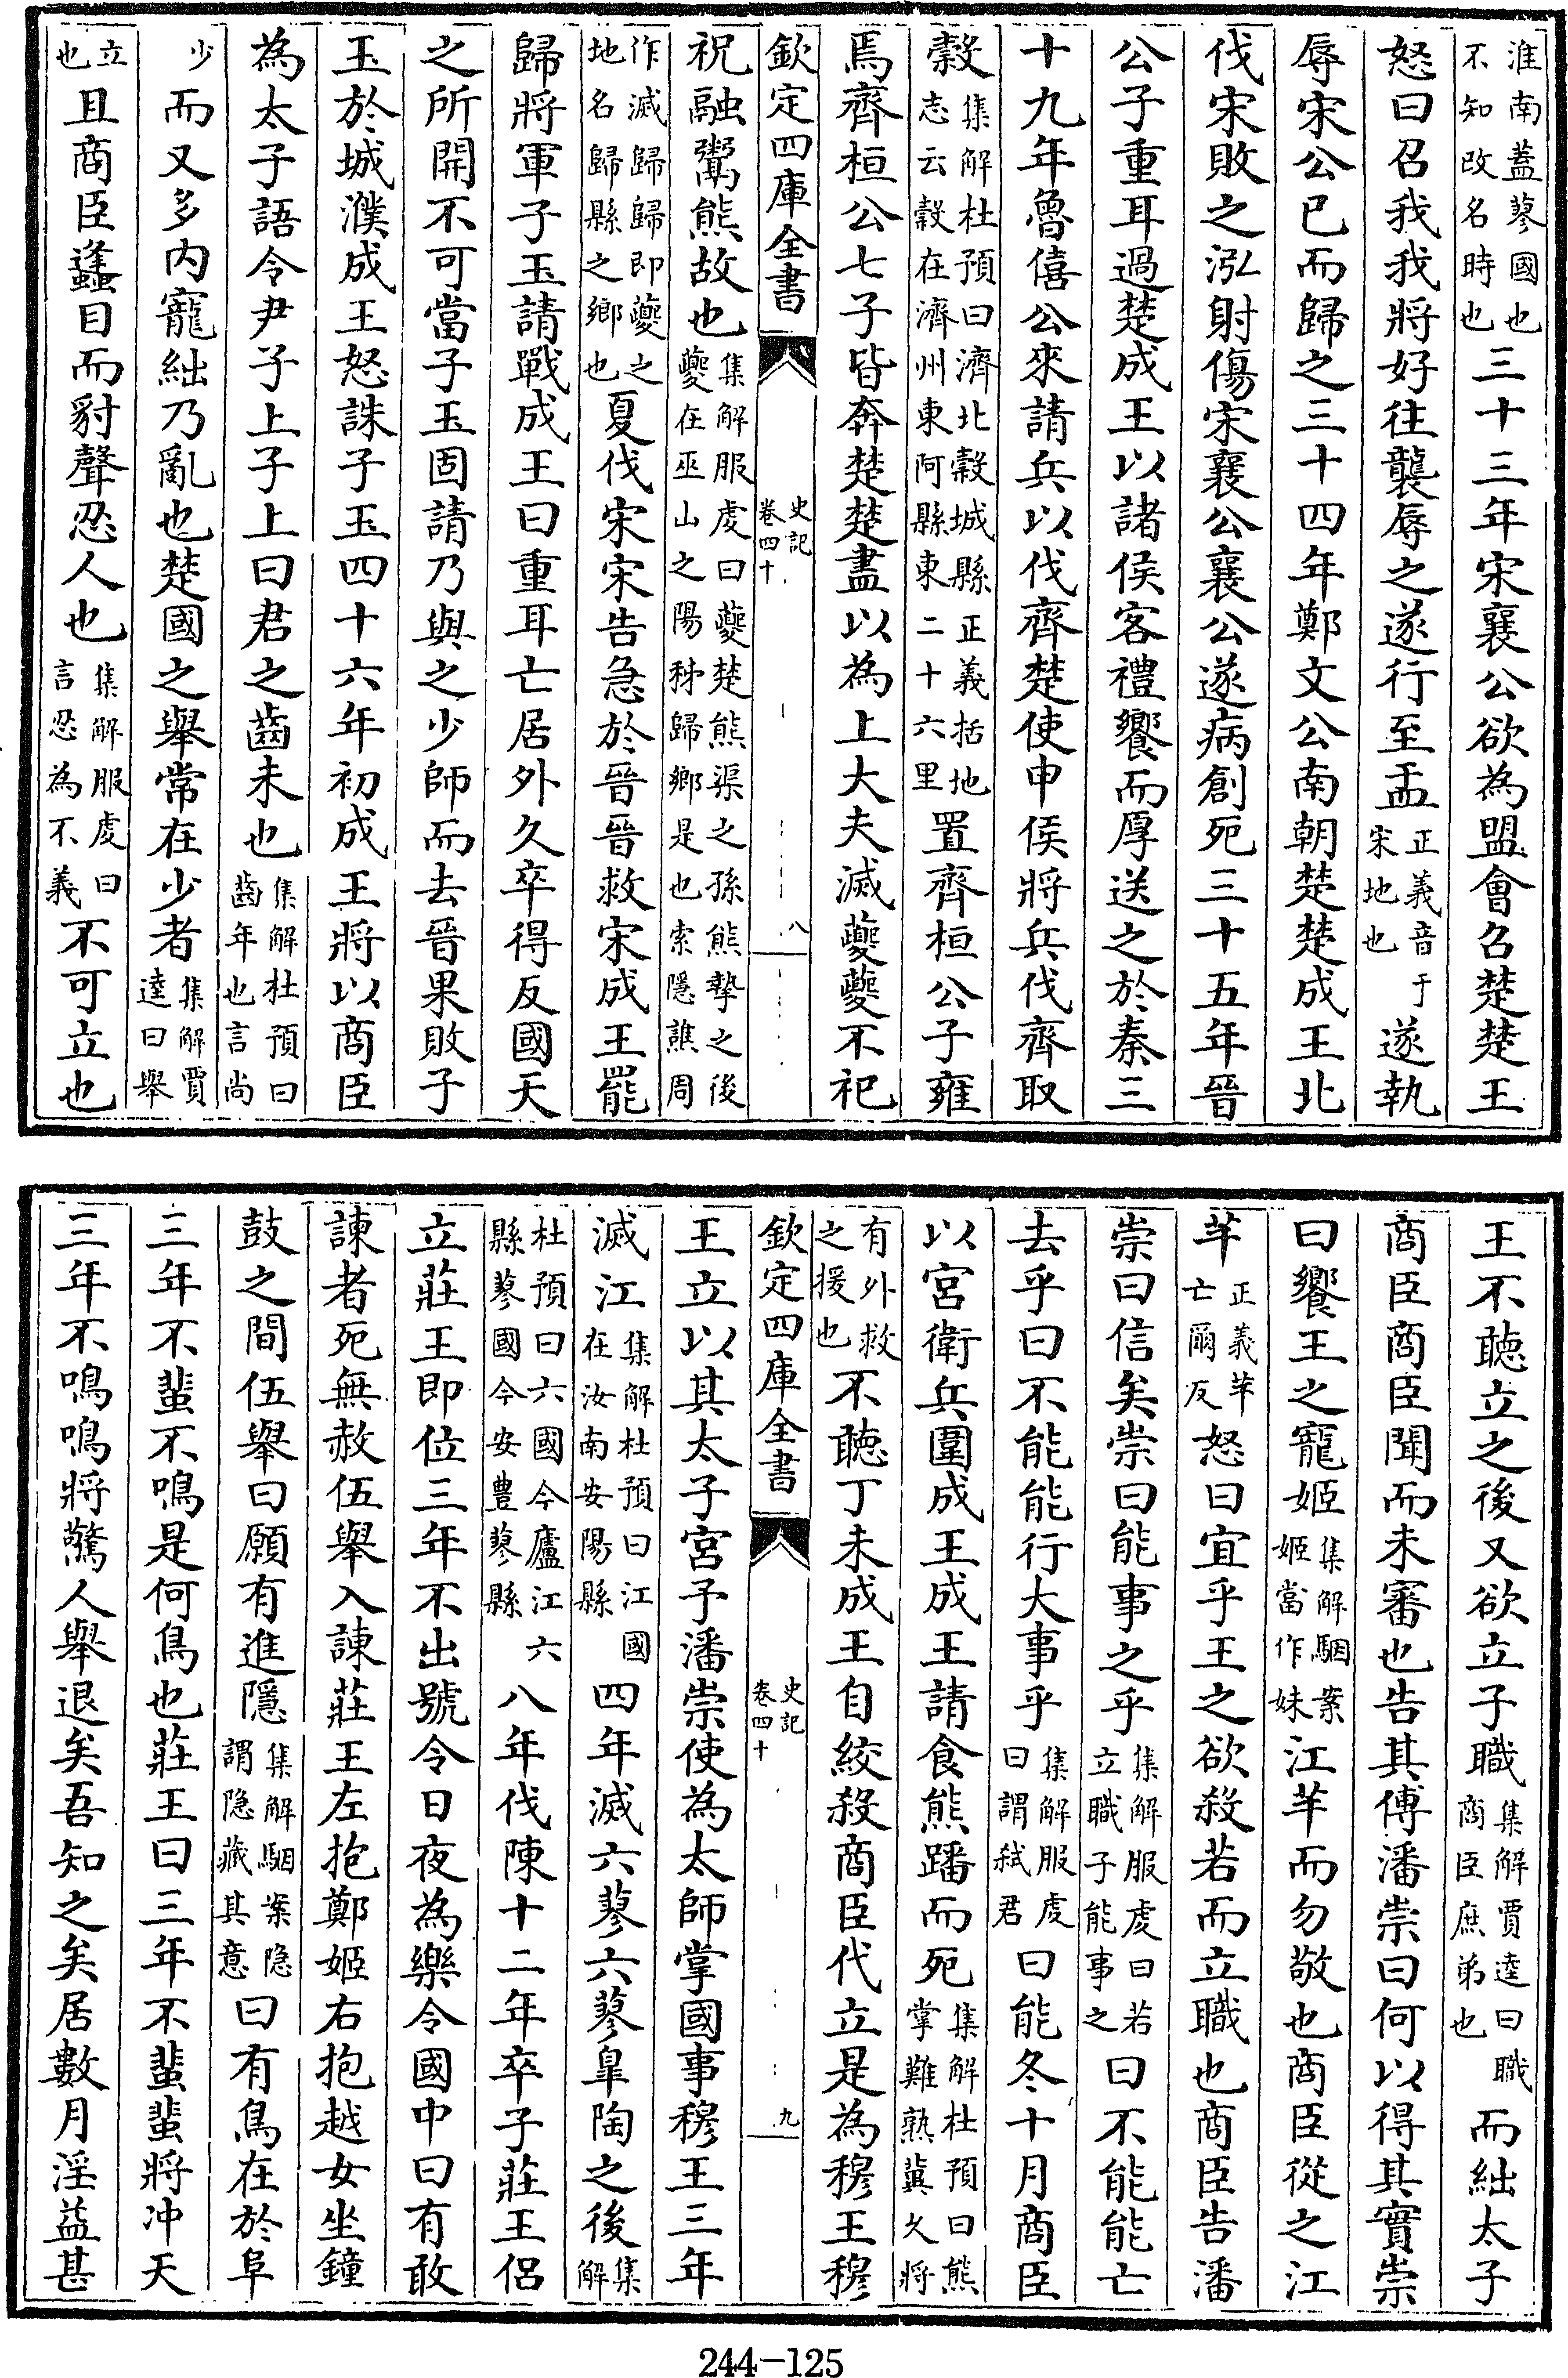 淮南蓋蓼國也不知改名時也三十三年宋襄公欲為盟會召楚楚王
怒曰召我我將好往襲辱之遂行至盂正義音于宋地也遂執
辱宋公已而歸之三十四年鄭文公南朝楚楚成王北
伐宋敗之泓射傷宋襄公襄公遂病創死三十五年晉
公子重耳過楚成王以諸侯客禮饗而厚送之於秦三
十九年魯僖公來請兵以伐齊楚使申侯將兵伐齊取
穀集解杜預曰濟北穀城縣正義括地志云穀在濟州東阿縣東二十六里置齊桓公子雍
焉齊桓公七子皆奔楚楚盡以為上大夫滅夔夔不祀
欽定四庫全書
史記
卷四十
八
祝融鬻熊故也集解服虔曰夔楚熊渠之孫熊摯之後夔在巫山之陽秭歸鄉是也索隱譙周
作滅歸歸即夔之地名歸縣之鄉也夏伐宋宋告急於晉晉救宋成王罷
歸將軍子玉請戰成王曰重耳亡居外久卒得反國天
之所開不可當子玉固請乃與之少師而去晉果敗子
玉於城濮成王怒誅子玉四十六年初成王將以商臣
為太子語令尹子上子上曰君之齒未也集解杜預曰齒年也言尚
少而又多内寵絀乃亂也楚國之舉常在少者集解賈逵曰舉
立也且商臣蠭目而豺聲忍人也集解服虔曰言忍為不義不可立也
王不聽立之後又欲立子職集解賈逵曰職商臣庶弟也而絀太子
商臣商臣聞而未審也告其傅潘崇曰何以得其實崇
曰饗王之寵姬集解駰案姬當作妹江芈而勿敬也商臣從之江
芈正義芈亡爾反怒曰宜乎王之欲殺若而立職也商臣告潘
崇曰信矣崇曰能事之乎集解服虔曰若立職子能事之曰不能能亡
去乎曰不能能行大事乎集解服虔曰謂弑君曰能冬十月商臣
以宮衛兵圍成王成王請食熊蹯而死集解杜預曰熊掌難熟冀久將
有外救之援也不聽丁未成王自絞殺商臣代立是為穆王穆
欽定四庫全書
史記
卷四十
九
王立以其太子宮予潘崇使為太師掌國事穆王三年
滅江集解杜預曰江國在汝南安陽縣四年滅六蓼六蓼皐陶之後集解
杜預曰六國今廬江六縣蓼國今安豊蓼縣八年伐陳十二年卒子莊王侶
立莊王即位三年不出號令日夜為樂令國中曰有敢
諫者死無赦伍舉入諫莊王左抱鄭姬右抱越女坐鐘
鼓之間伍舉曰願有進隱集解駰案隐謂隐藏其意曰有鳥在於阜
三年不蜚不鳴是何鳥也莊王曰三年不蜚蜚將冲天
三年不鳴鳴將驚人舉退矣吾知之矣居數月淫益甚
244-125